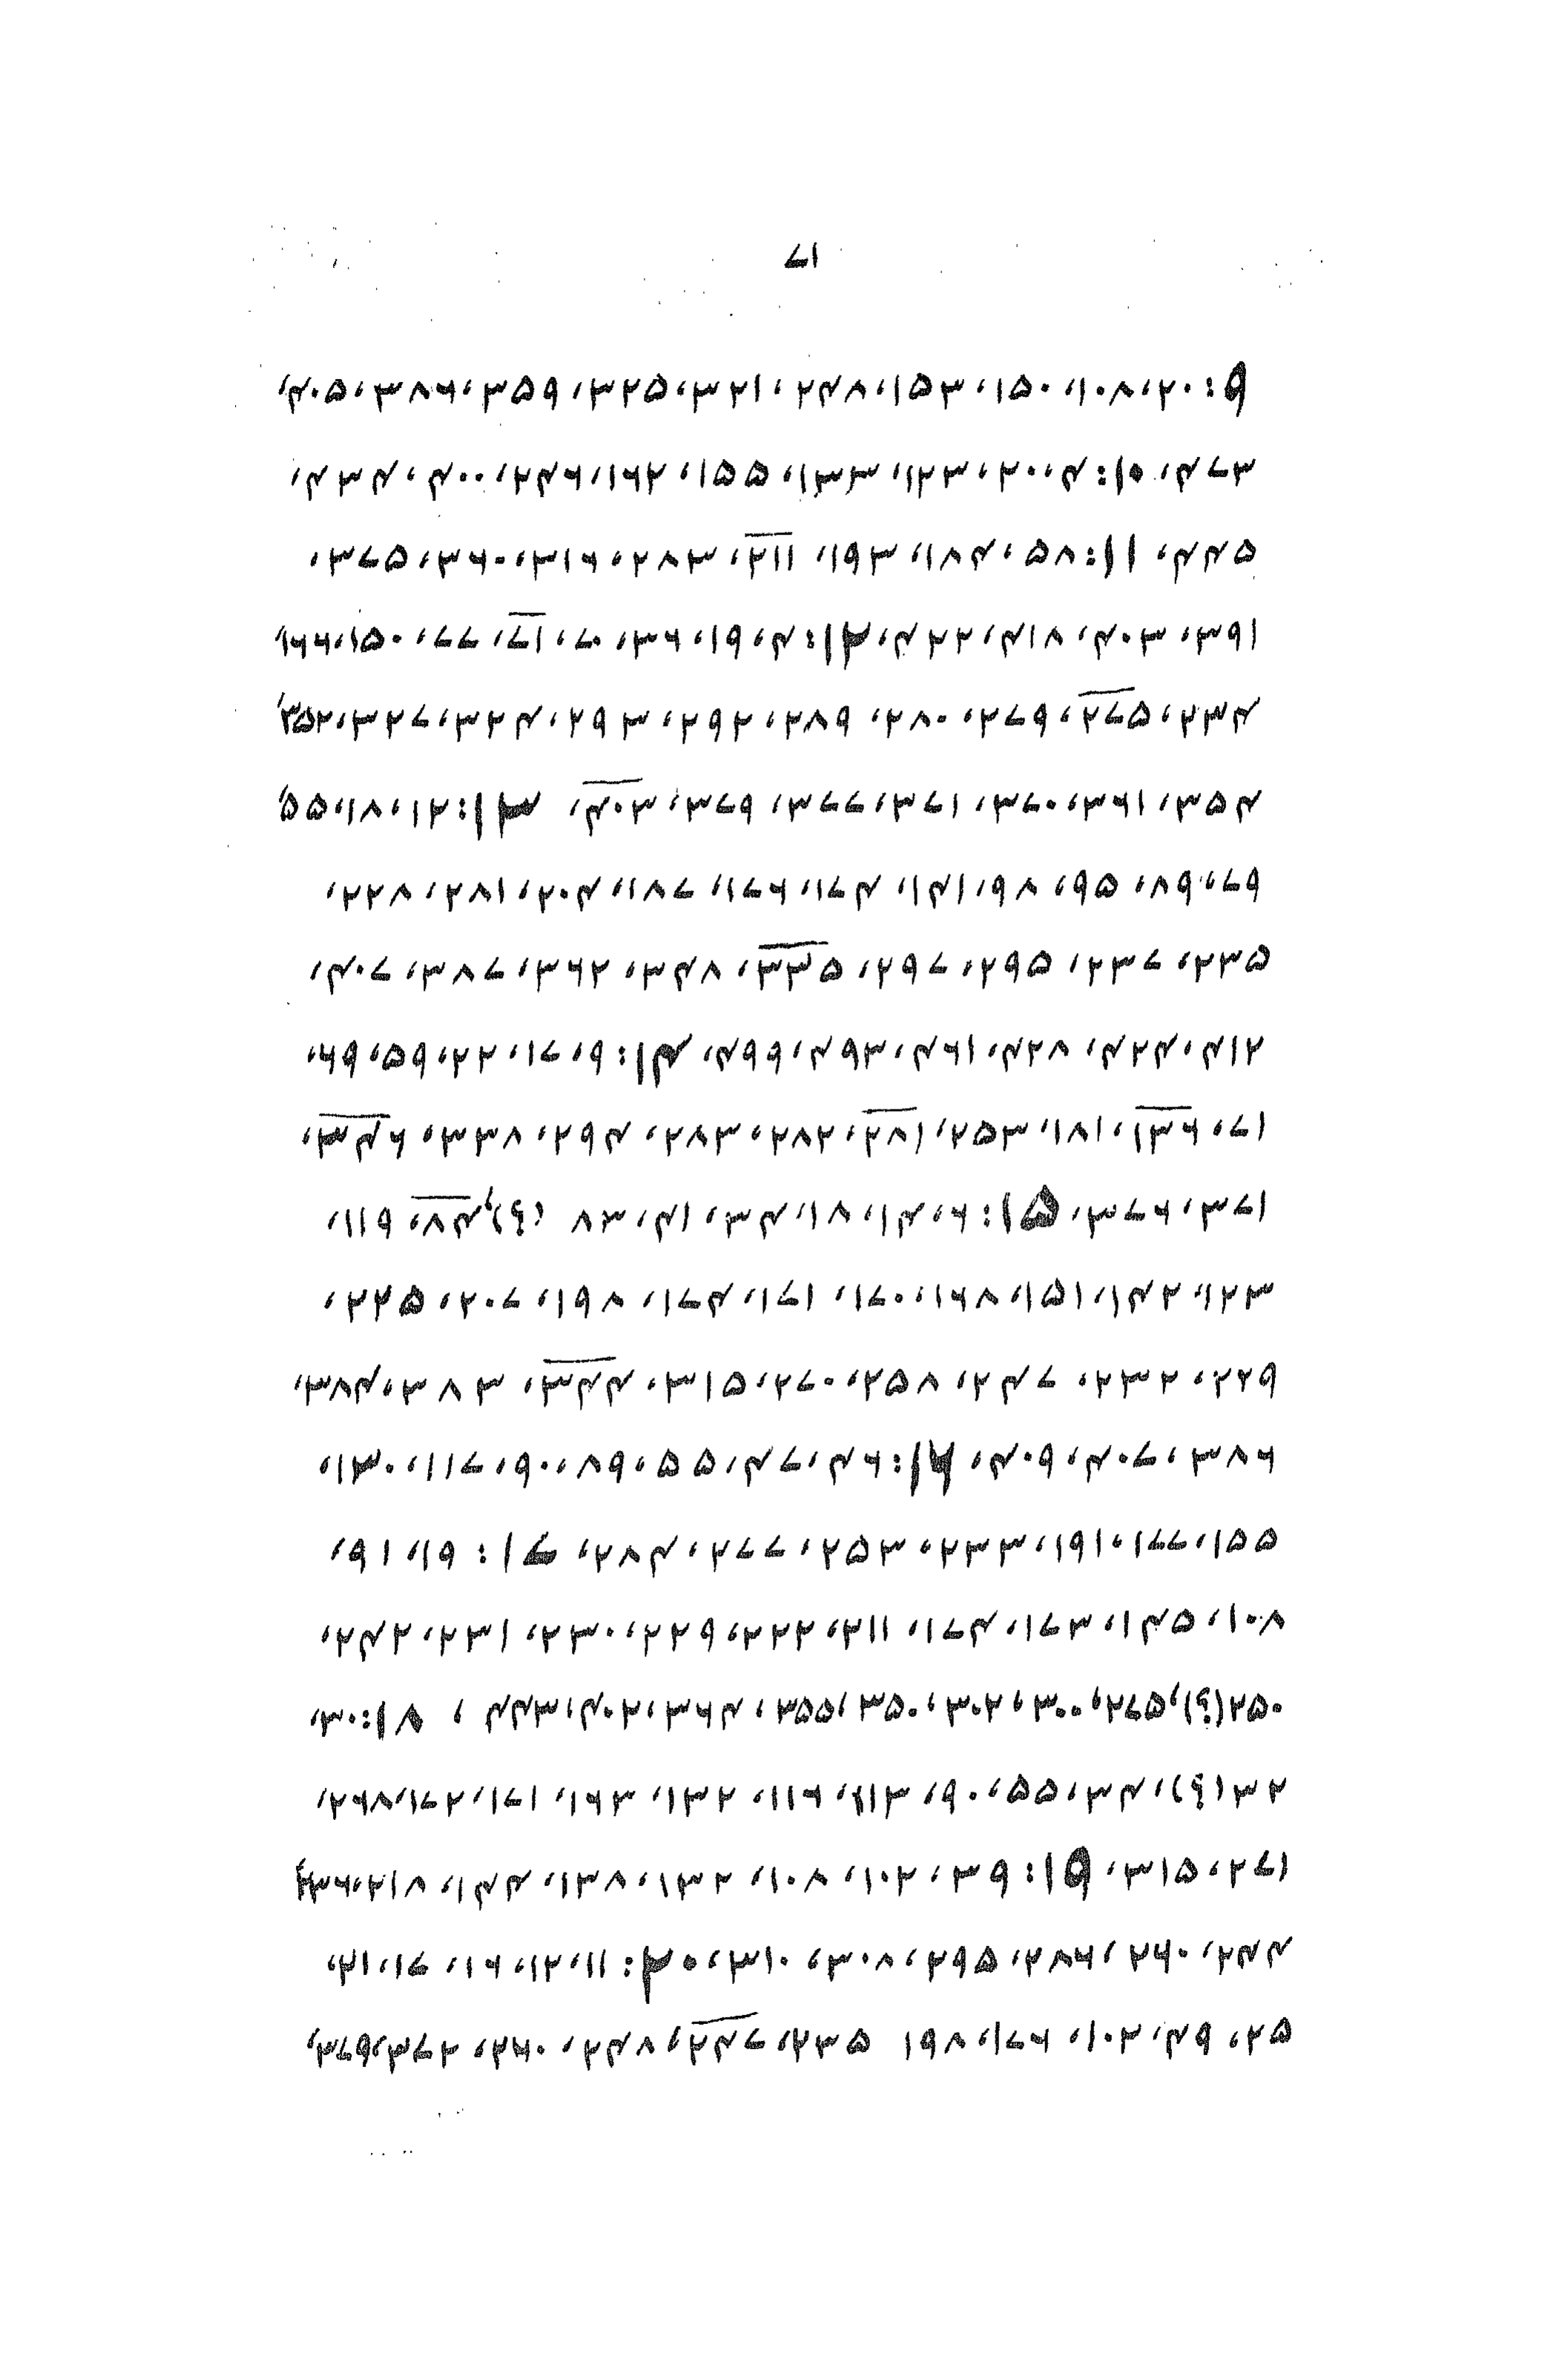 ۷۱
۹: ۲۰، ۱۰۸، ۱۵۰، ۱۵۳، ۲۴۸، ۳۲۱، ۳۲۵، ۳۵۹، ۳۸۶، ۴۰۵،
۴۷۳، ۱۰: ۴، ۲۰، ۱۲۳، ۱۳۳، ۱۵۵، ۱۶۲، ۲۴۶، ۴۰۰، ۴۳۴،
۴۴۵، ۱۱: ۵۸، ۱۸۴، ۱۹۳، ۲۱۱، ۲۸۳، ۳۱۶، ۳۶۰، ۳۷۵،
۳۹۱، ۴۰۳، ۴۱۸، ۴۲۲، ۱۲: ۴، ۱۹، ۳۶، ۷۰، ۷۱، ۷۷، ۱۵۰، ۱۶۶،
۲۳۴، ۲۷۵، ۲۷۹، ۲۸۰، ۲۸۹، ۲۹۲، ۲۹۳، ۳۲۴، ۳۲۷، ۳۵۲،
۳۵۴، ۳۶۱، ۳۷۰، ۳۷۱، ۳۷۷، ۳۷۹، ۴۰۳، ۱۳: ۱۲، ۱۸، ۵۵،
۷۹، ۸۹، ۹۵، ۹۸، ۱۴۱، ۱۷۴، ۱۷۶، ۱۸۷، ۲۰۴، ۲۸۱، ۲۲۸،
۲۳۵، ۲۳۷، ۲۹۵، ۲۹۷، ۳۳۵، ۳۴۸، ۳۶۲، ۳۸۷، ۴۰۷،
۴۱۲، ۴۲۴، ۴۲۸، ۴۶۱، ۴۹۳، ۴۹۹، ۱۴: ۹، ۱۷، ۲۲، ۵۹، ۶۹،
۷۱، ۱۳۶، ۱۸۱، ۲۵۳، ۲۸۱، ۲۸۲، ۲۸۳، ۲۹۴، ۳۳۸، ۳۴۶،
۳۷۱، ۳۷۶، ۱۵: ۶، ۱۴، ۱۸، ۳۴، ۴۱، ۸۳ (؟)، ۸۴، ۱۱۹،
۱۲۳، ۱۴۲، ۱۵۱، ۱۶۸، ۱۷۰، ۱۷۱، ۱۷۴، ۱۹۸، ۲۰۷، ۲۲۵،
۲۲۹، ۲۳۲، ۲۴۷، ۲۵۸، ۲۷۰، ۳۱۵، ۳۴۴، ۳۸۳، ۳۸۴،
۳۸۶، ۴۰۷، ۴۰۹، ۱۶: ۴۶، ۴۷، ۵۵، ۸۹، ۹۰، ۱۱۷، ۱۳۰،
۱۵۵، ۱۷۷، ۱۹۱، ۲۳۳، ۲۵۳، ۲۷۷، ۲۸۴، ۱۷: ۱۹، ۹۱،
۱۰۸، ۱۴۵، ۱۷۳، ۱۷۴، ۲۱۱، ۲۲۲، ۲۲۹، ۲۳۰، ۲۳۱، ۲۴۲،
۲۵۰ (؟)، ۲۷۵، ۳۰۰، ۳۰۲، ۳۵۰، ۳۵۵، ۳۶۴، ۴۰۲، ۴۴۳، ۱۸: ۳۰،
۳۲ (؟)، ۳۴، ۵۵، ۹۰، ۱۱۳، ۱۱۶، ۱۳۲، ۱۶۳، ۱۷۱، ۱۷۲، ۲۶۸،
۲۷۱، ۳۱۵، ۱۹: ۳۹، ۱۰۲، ۱۰۸، ۱۳۲، ۱۳۸، ۱۴۴، ۲۱۸، ۲۳۶،
۲۴۴، ۲۶۰، ۲۸۶، ۲۹۵، ۳۰۸، ۳۱۰، ۲۰: ۱۱، ۱۲، ۱۶، ۱۷، ۲۱،
۲۵، ۴۹، ۱۰۲، ۱۷۶، ۱۹۸ ۲۳۵، ۲۴۷، ۲۴۸، ۲۶۰، ۳۷۲، ۳۷۹،